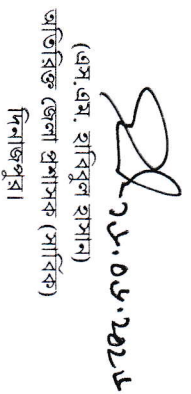 (এস.এম. হাবিবুল হাসান)
অতিরিক্ত জেলা প্রশাসক (সার্বিক)
দিনাজপুর।